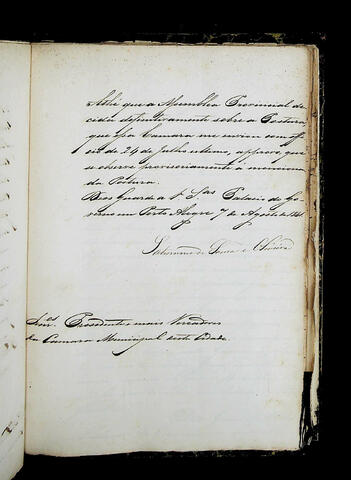 Até que a Assembléa Provincial de
cida definitivamente sobre a Postura,
que essa Camara me enviou com offi
cio de 24 de Julho ultimo, approvo, que
se observe provisoriamente a menciona
da Postura.
Deos Guarde a V. S.as Palacio do Go
verno em Porto Alegre 7 de Agosto de
Saturnino de Souza e Oliveira
Snr.es Presidente, e mais Vereadores
da Camara Municipal desta Cidade.